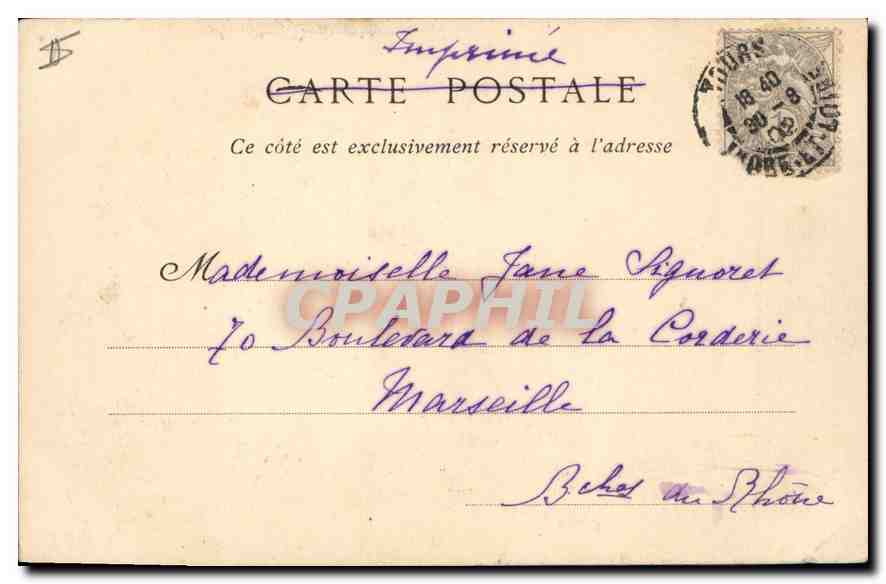 Imprimé
CARTE POSTALE
Ce côté est exclusivement réservé à l'adresse
TOURS
18 40
30 - 8
INDRE-ET-
Mademoiselle Jane Signoret
CPAPHIL
70 Boulevard de la Corderie
Marseille
Bches du Rhône